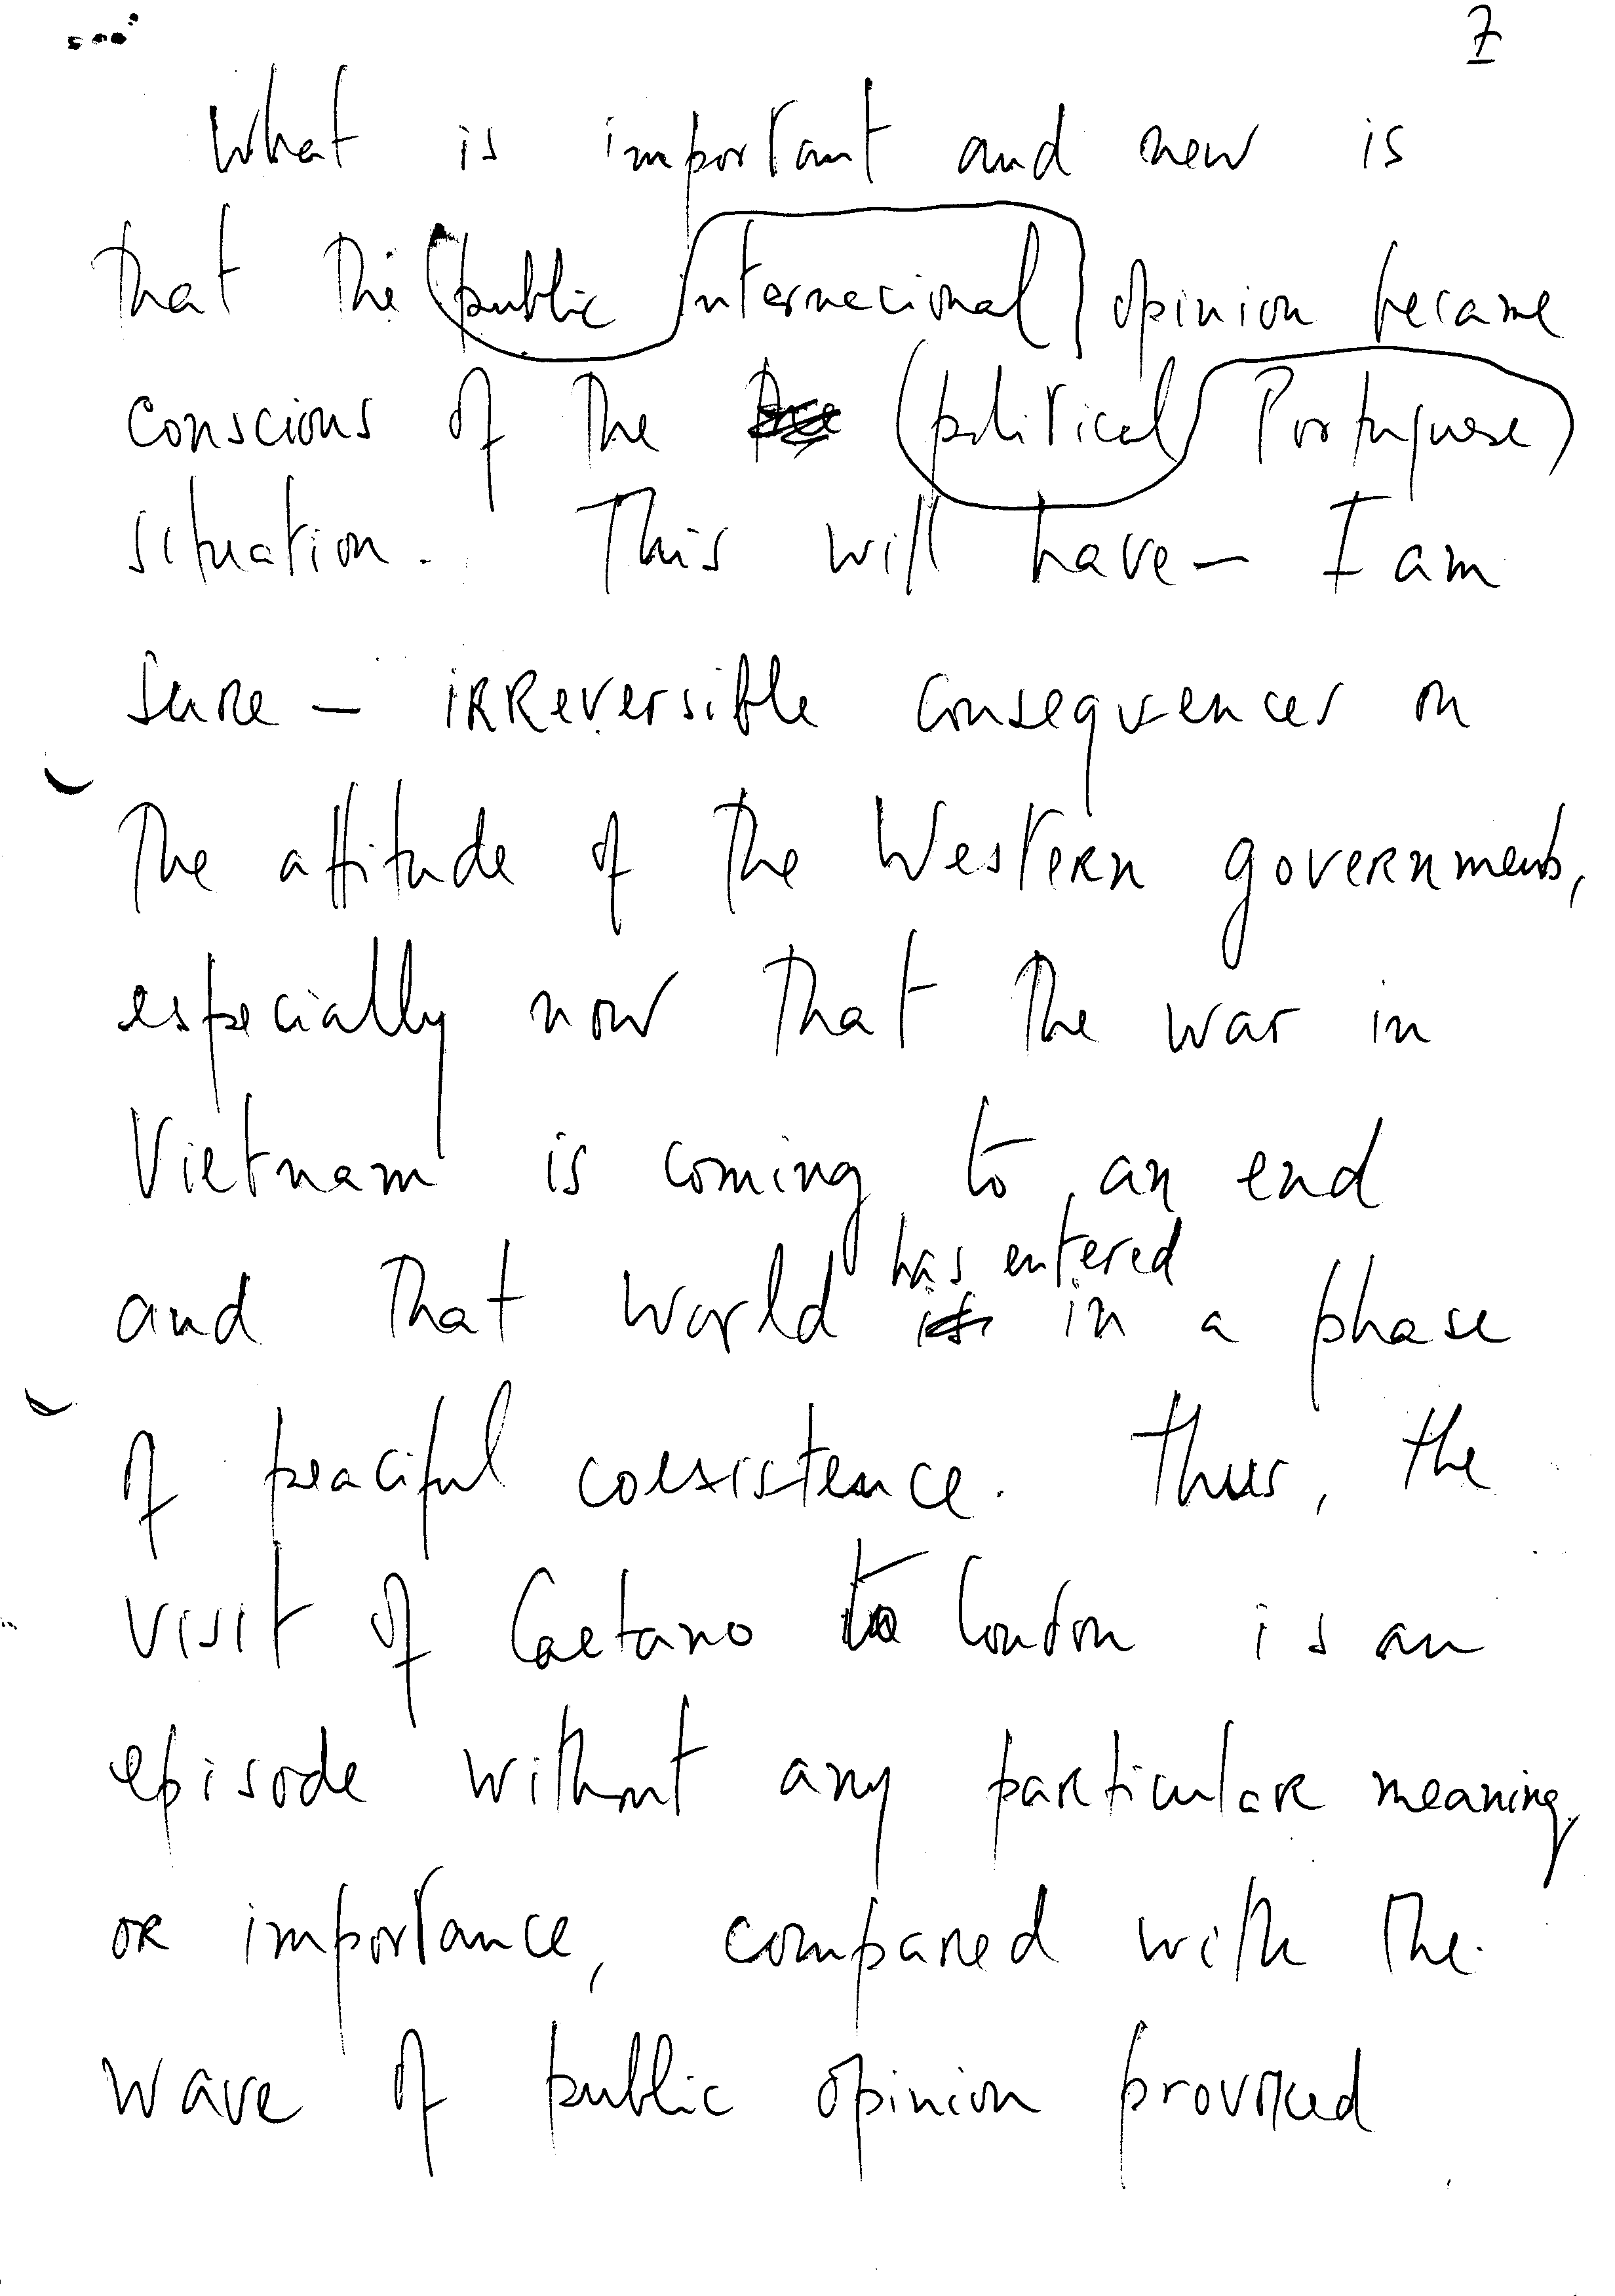 7
What is important and new is
that the public internacional opinion became
conscious of the political Portuguese
situation. This will have — I am
sure — irreversible consequences on
the attitude of the Western governments,
especially now that the war in
Vietnam is coming to an end
has entered
and that world is in a phase
of peaciful coexistence. Thus, the
visit of Caetano to London is an
episode without any particular meaning
or importance, compared with the
wave of public opinion provoked